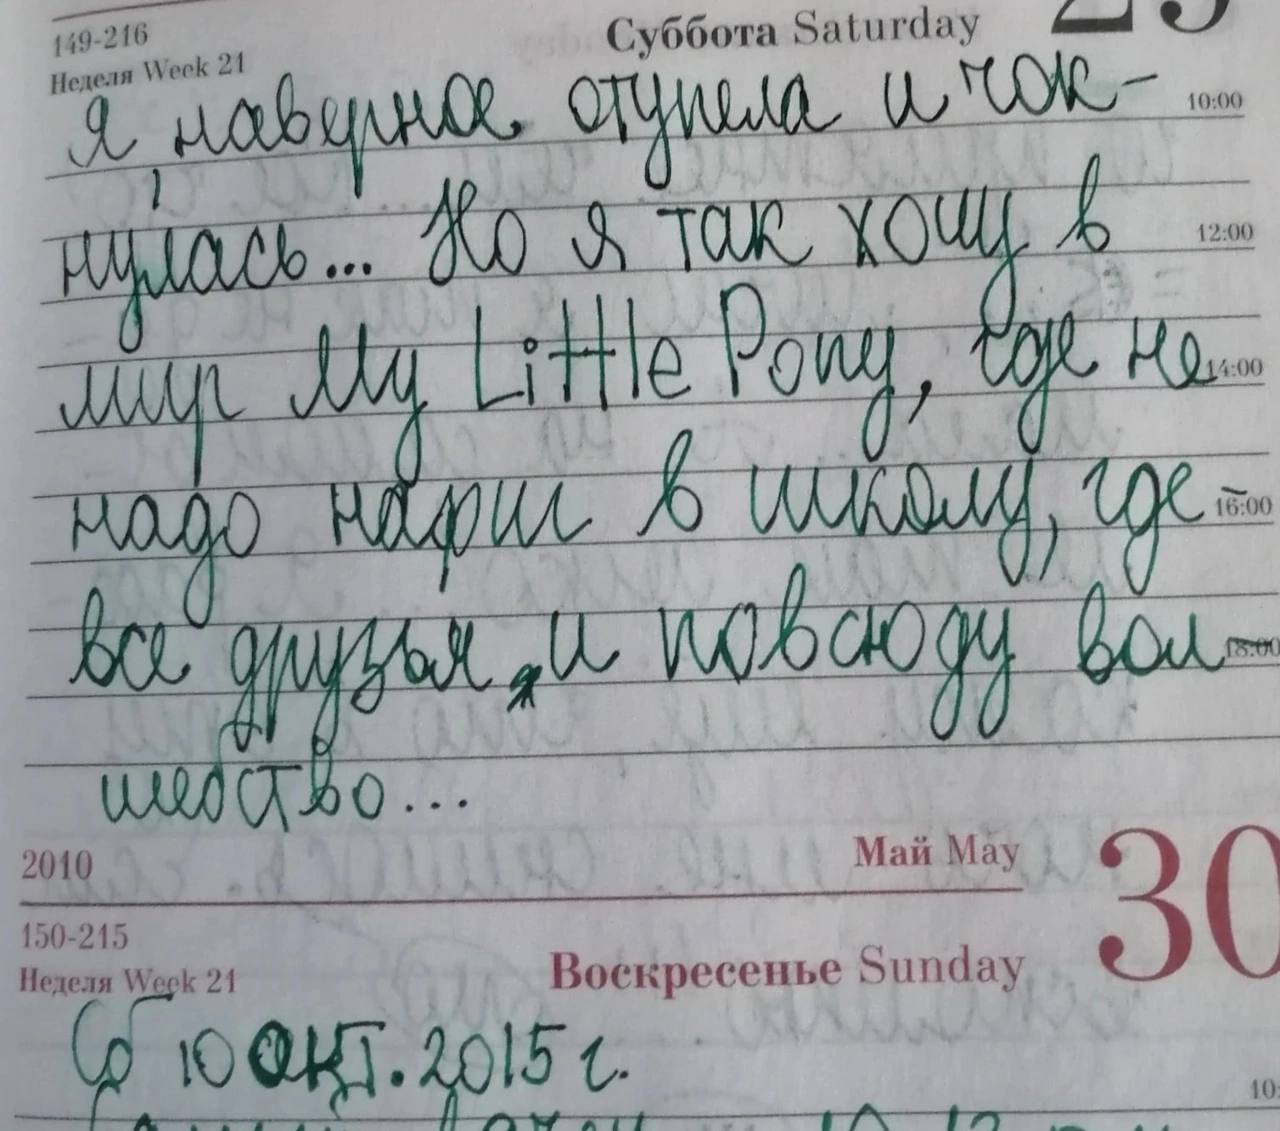 149-216
Суббота Saturday 29
Неделя Week 21
я наверное отупела и чок-
10:00
нулась... Но я так хощу в
12:00
мир My Little Pony, где не
14:00
надо нафиг в школу, где
16:00
все друзья и повсюду вол-
18:00
шебство...
2010
Май May
30
150-215
Неделя Week 21
Воскресенье Sunday
Сб 10 окт. 2015 г.
10: